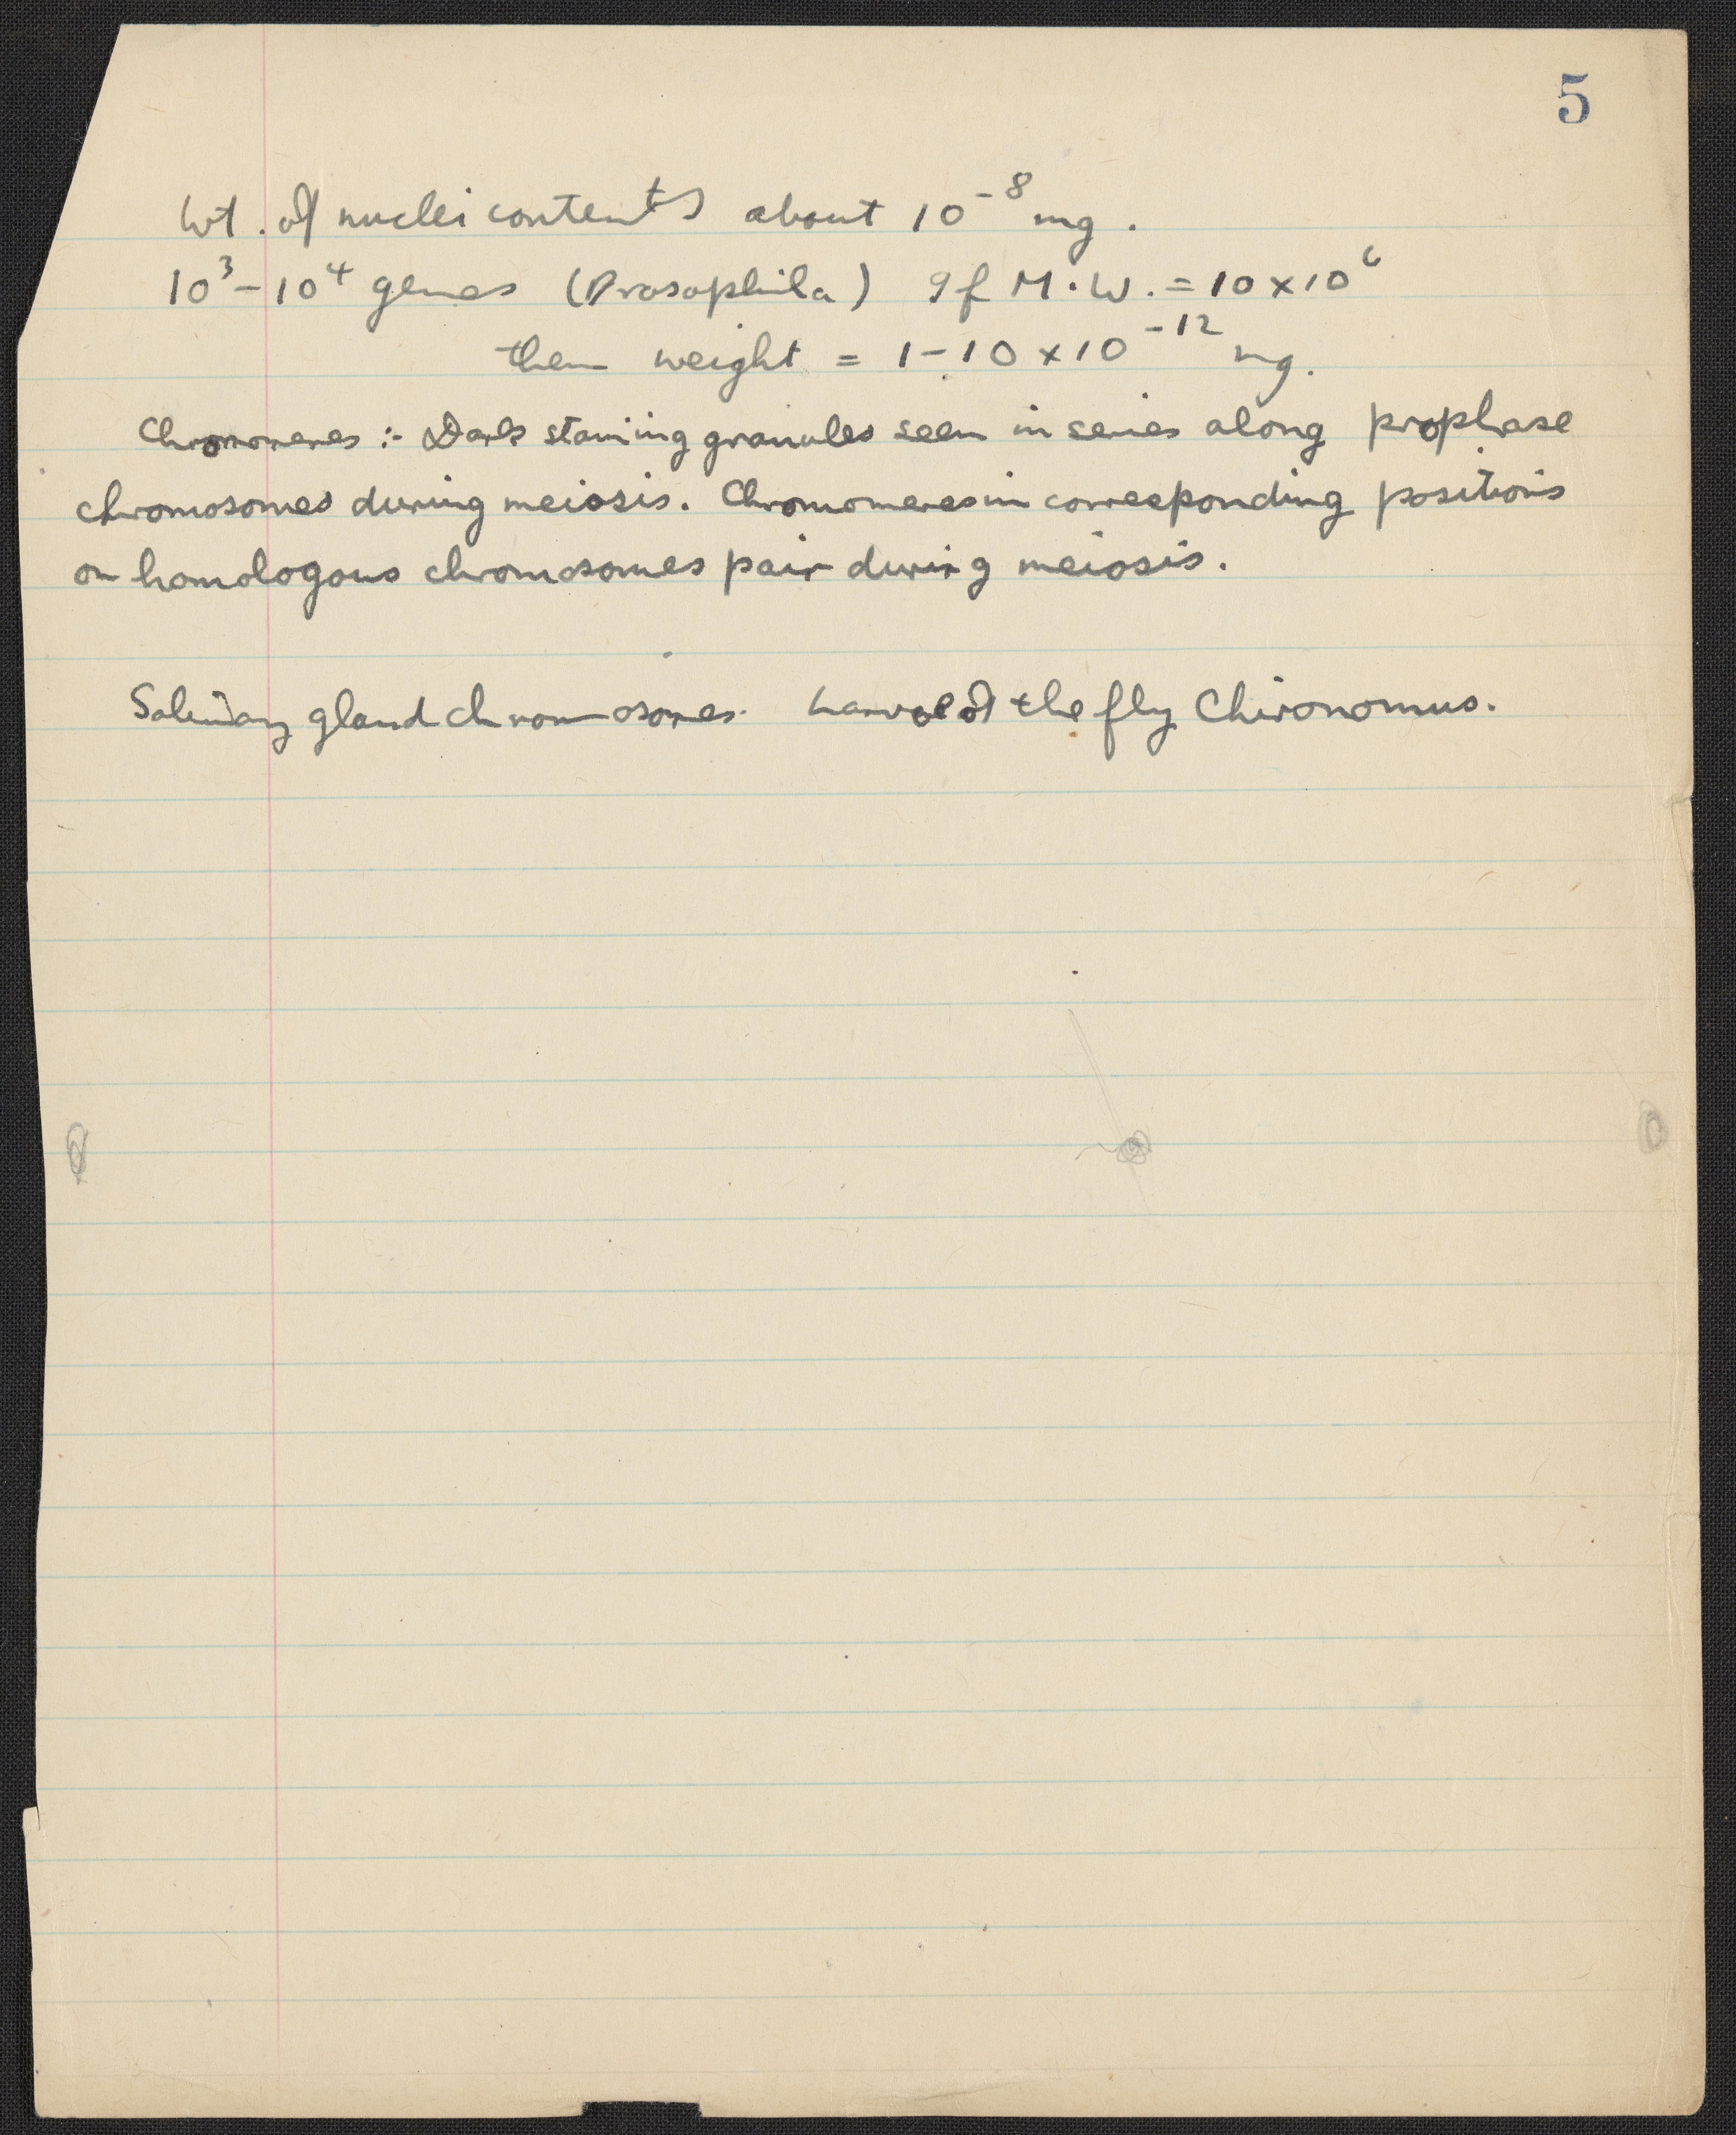 5
Wt. of nuclei contents about 10⁻⁸ mg.
10³-10⁴ genes (Drosophila) If M.W. = 10 x 10⁶
then weight = 1-10 x 10⁻¹² mg.
Chromomeres :- Dark staining granules seen in series along prophase
chromosomes during meiosis. Chromomeres in corresponding positions
on homologous chromosomes pair during meiosis.
Salivary gland chromosomes. Larvae of the fly Chironomus.